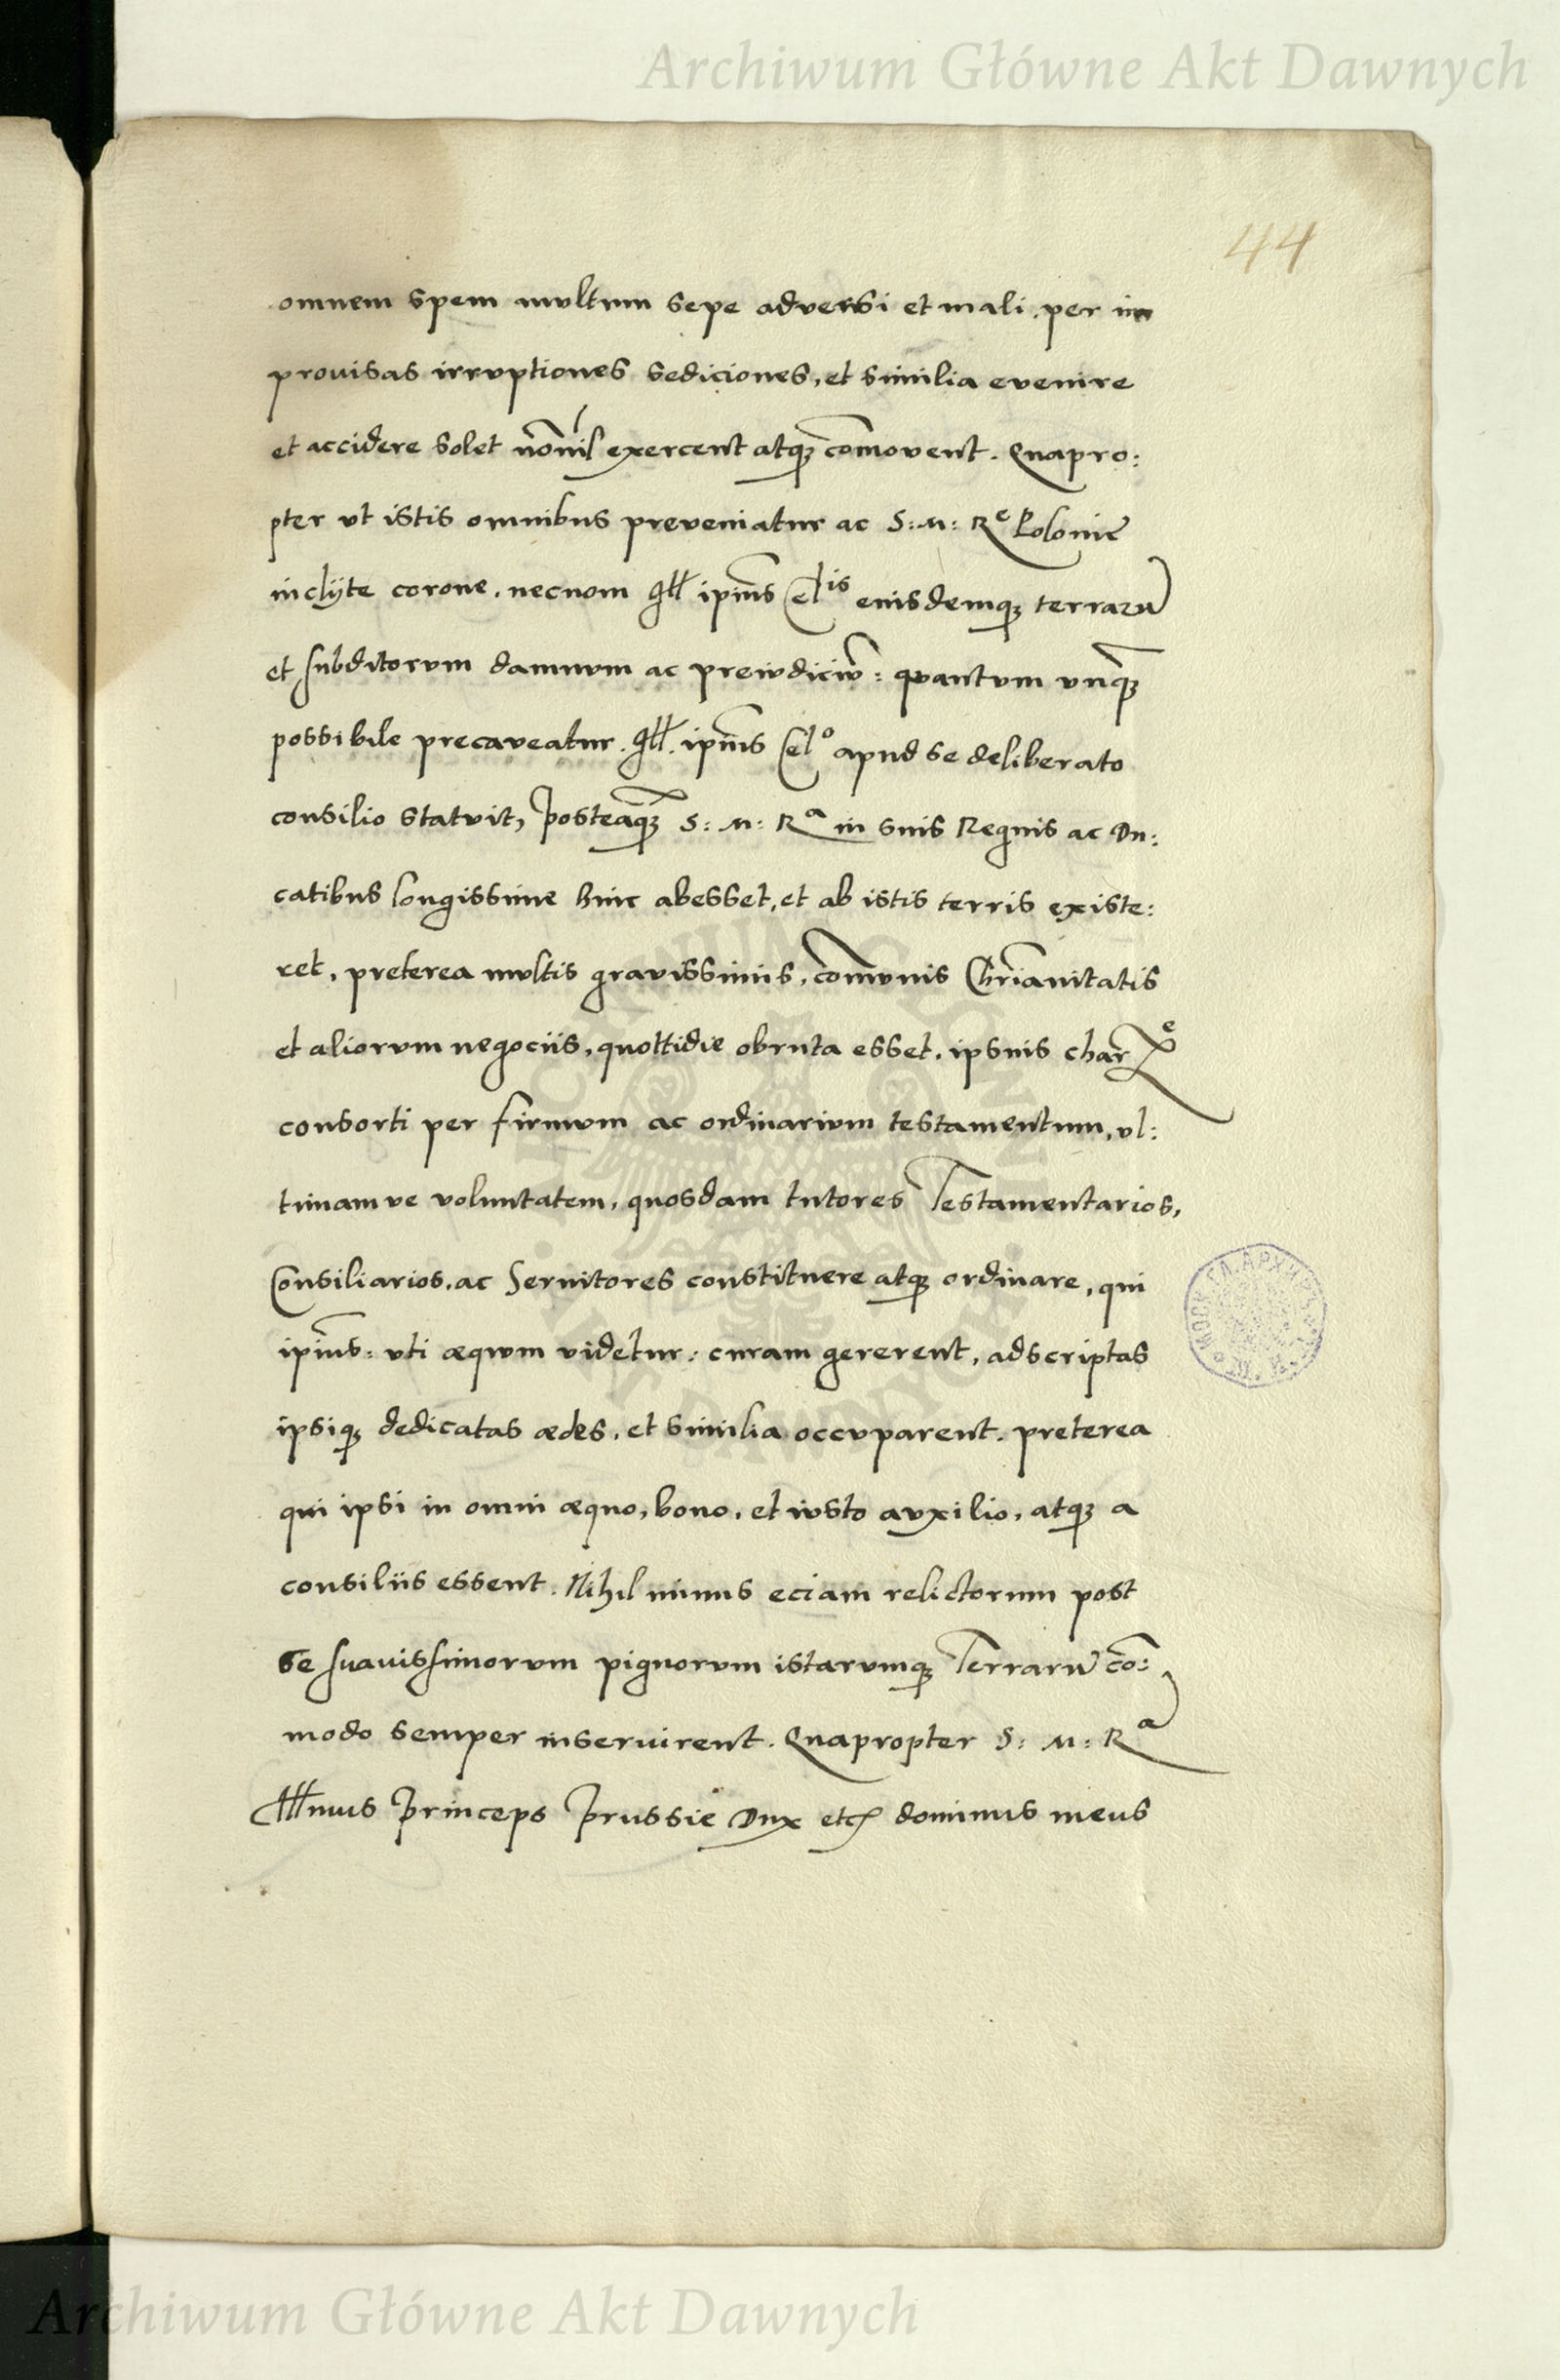 Archiwum Główne Akt Dawnych
44
omnem spem multum sepe adversi et mali, per im
provisas irruptiones sediciones, et similia evenire
et accidere solet exercent atq₃ com̃ovent. Quapro:
pter ut istis omnibus preveniatur ac S: M: Rᵉ Polonie
inclÿte corone, necnom Ill ip̃ius Celⁱˢ eiusdemq₃ terrarũ
et subditorum damnum ac preiudiciũ: quantum unq̃₃
possibile precaveatur. Ill. ip̃ius Celᵒ apud se deliberato
consilio statuit, posteaq̃₃ S: M: Rᵃ in suis Regnis ac Du:
catibus longissime hinc abesset, et ab istis terris existe:
ret, preterea multis gravissimis, com̃unis Chr̃ianitatis
et aliorum negociis, quottidie obruta esset. ipsius char̃ᵉ
consorti per firmum ac ordinarium testamentum, ul:
timamve voluntatem, quosdam tutores Testamentarios,
Consiliarios, ac Servitores constituere atq₃ ordinare, qui
ip̃ius: uti æquum videtur: curam gererent, adscriptas
ipsiq₃ dedicatas ædes, et similia occuparent. preterea
qui ipsi in omni æquo, bono, et iusto auxilio, atq₃ a
consiliis essent. Nihil minus eciam relictorum post
se suavissimorum pignorum istarumq₃ Terrarũ cõ:
modo semper inservirent. Quapropter S: M: Rᵃ
Illmus Princeps Prussie Dux etc dominus meus
Archiwum Główne Akt Dawnych